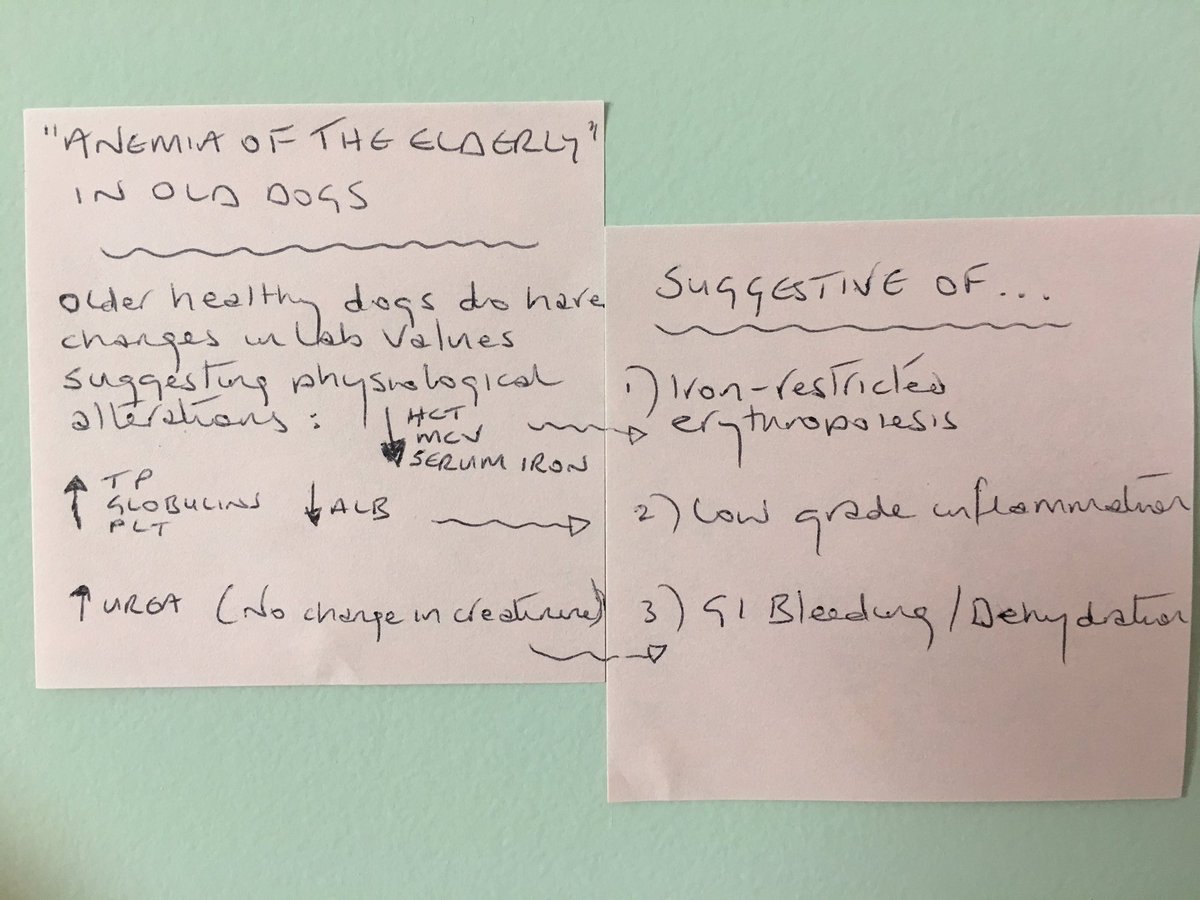 "ANEMIA OF THE ELDERLY"
IN OLD DOGS
Older healthy dogs do have
changes in lab values
suggesting physiological
alterations: ↓ HCT
MCV
SERUM IRON
↑ TP
GLOBULINS
PLT
↓ ALB
↑ UREA (No change in creatinine)
SUGGESTIVE OF...
1) Iron-restricted
erythropoiesis
2) Low grade inflammation
3) GI Bleeding/Dehydration